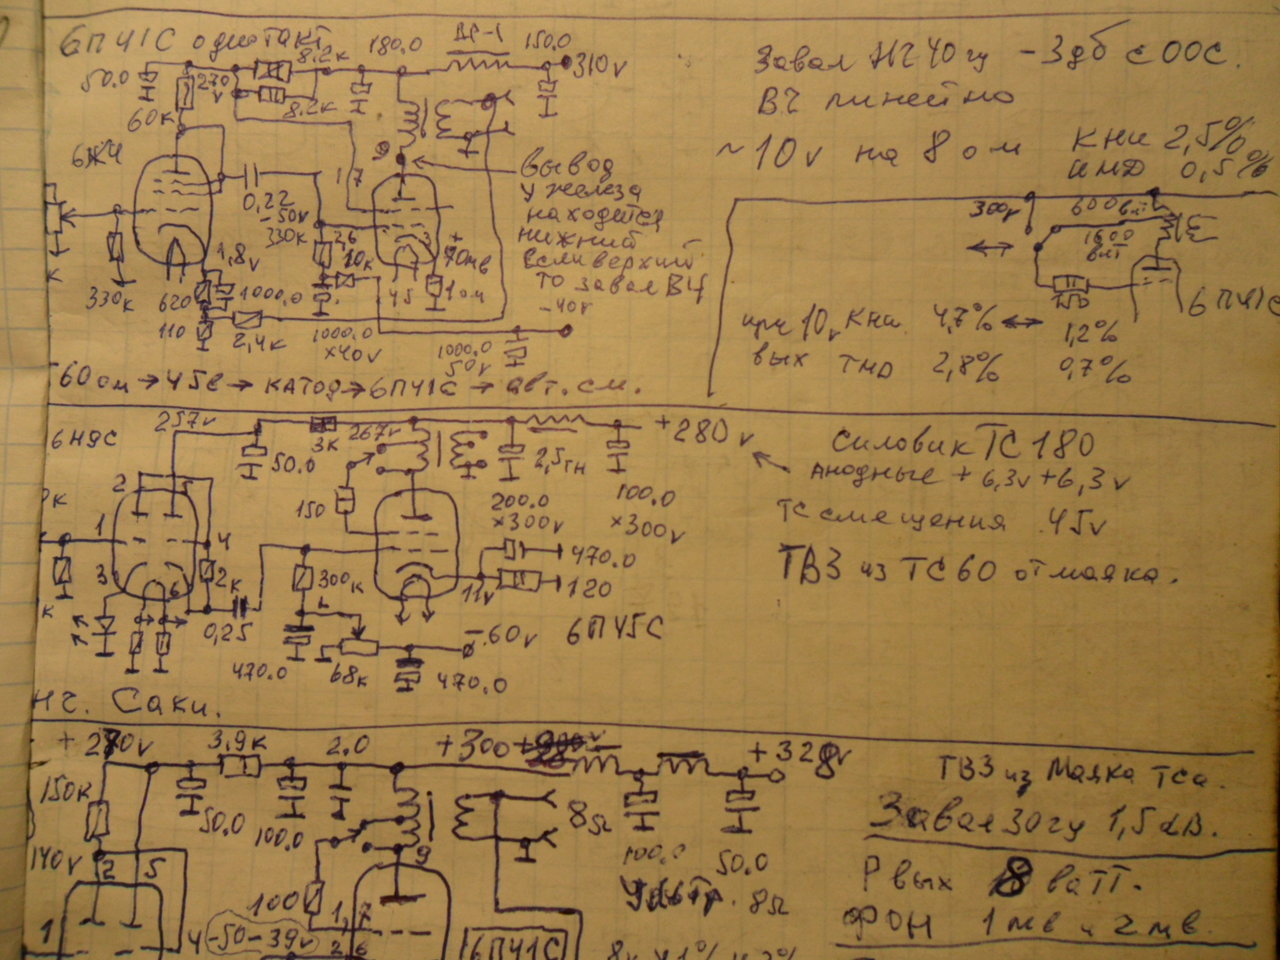 6П41С однотакт
8.2к
180.0
ДР-1
150.0
310v
50.0
270
v
8.2к
60к
6Ж4
0,22
-50v
330к
17
9
2,6
10к
3
+
70мв
1,8v
330к
620
1000.0
110
2,4к
1000.0
x40v
45
1 ом
-40v
1000.0
50v
вывод
у железа
находится
нижний
если верхний
то завал ВЧ
60 ом → 45в → катод → 6П41С → авт. см.
Завал НЧ 40гц -3дб с ООС.
ВЧ линейно
~10v на 8 ом
КНИ 2,5%
ИМД 0,5%
300v
600
вит
1600
вит
150
6П41С
при 10v КНИ 4,7% ↔ 1,2%
вых ТМД 2,8% 0,7%
6Н9С
257v
3к
267v
+280v
50.0
2,5гн
2
5
1
4
3
6
150
200.0
x300v
100.0
x300v
2к
300к
470.0
120
11v
0,25
470.0
68к
-60v
470.0
6П45С
нч. Саки.
Силовик ТС 180
анодные + 6,3v + 6,3v
ТС смещения 45v
ТВЗ из ТС60 от маяка.
+270v
3,9к
2.0
+300
+328v
150к
50.0
100.0
8Ω
100.0
50.0
140v
2
5
9
100
1,7
2
6
1
4
-50-39v
6П41С
8Ω
ТВЗ из Маяка ТСа.
Завал 30гц 1,5дВ.
Р вых 8 ватт.
ФОН 1мв и 2мв.